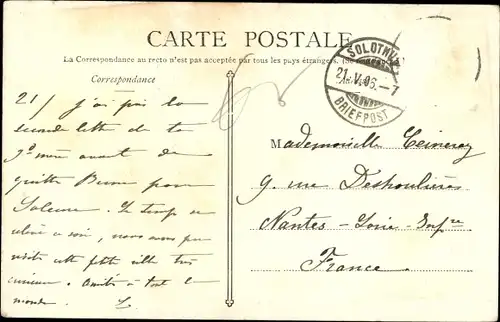 CARTE POSTALE
La Correspondance au recto n'est pas acceptée par tous les pays étrangers. (Se
Correspondance
SOLOTHURN
21.V.06.-7
BRIEFPOST
21/ j'ai pris la
seconde lettre de ta
g'd mère avant de
quitter Berne pour
Soleure. Le temps se
ce soir, nous avons pu
visiter cette petite ville très
curieuse. Amitiés à tout le
monde. L.
Mademoiselle
9. rue Deshoulières
Nantes - Loire - Infre
France